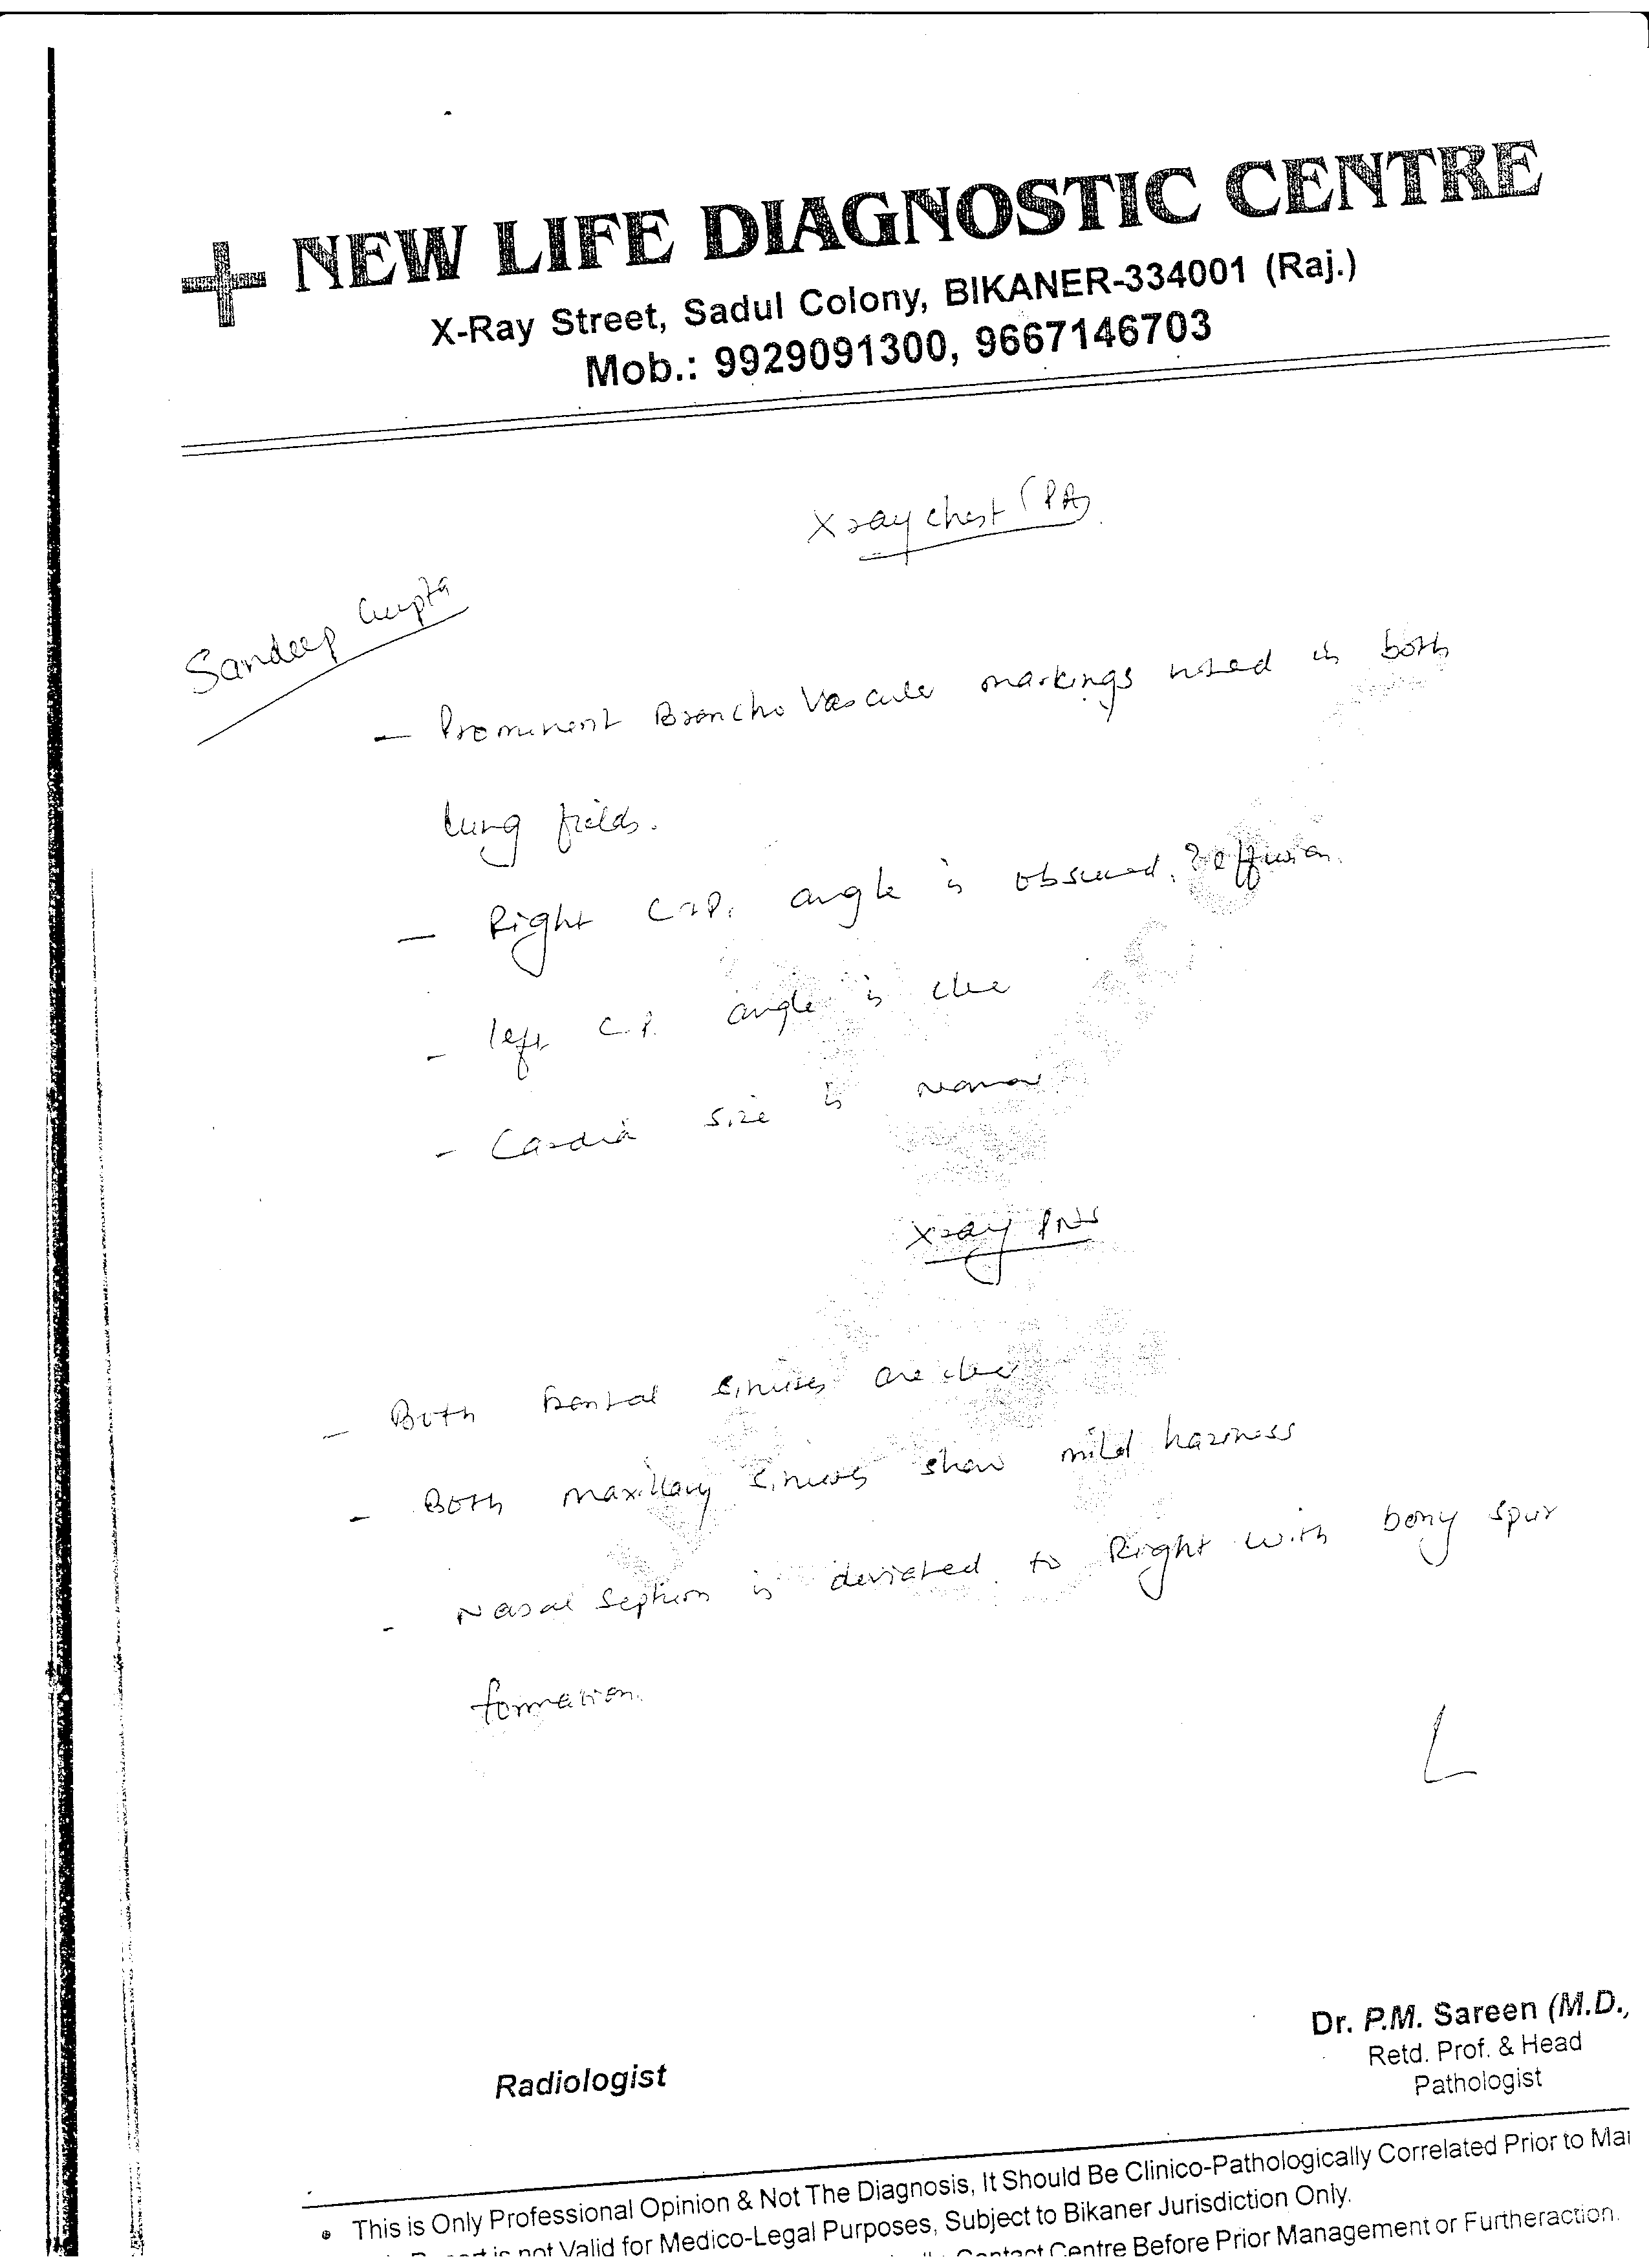 NEW LIFE DIAGNOSTIC CENTRE
X-Ray Street, Sadul Colony, BIKANER-334001 (Raj.)
Mob.: 9929091300, 9667146703
Xray chest (PA)
Sandeep Gupta
- Prominent Broncho Vascular markings noted in both
lung fields.
- Right C.P. angle is obscured. ? effusion.
- left C.P. angle is clear
- Cardia size is normal
Xray PNS
- Both frontal sinuses are clear
- Both maxillary sinuses show mild haziness
- Nasal septum is deviated to Right with bony spur
formation.
Dr. P.M. Sareen (M.D.,
Retd. Prof. & Head
Radiologist
Pathologist
This is Only Professional Opinion & Not The Diagnosis, It Should Be Clinico-Pathologically Correlated Prior to
is not Valid for Medico-Legal Purposes, Subject to Bikaner Jurisdiction Only.
Contact Centre Before Prior Management or Furtheraction.